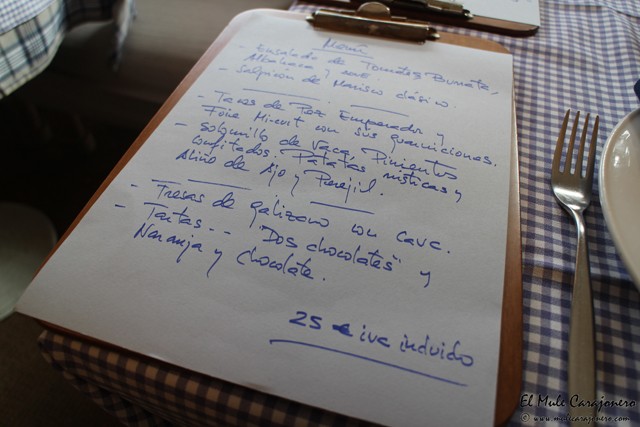 Menú
- Ensalada de Tomates, Burrata,
Albahaca y
- Salpicón de Marisco clásico.
- Tacos de Pez Emperador y
Foie Mi-cuit con sus guarniciones.
- Solomillo de Vaca, Pimientos
confitados. Patatas rústicas y
Aliño de Ajo y Perejil.
- Fresas de galizano con cava.
- Tartas -- "Dos chocolates" y
Naranja y chocolate.
25 € iva incluido
El Mule Carajonero
© www.mulecarajonero.com